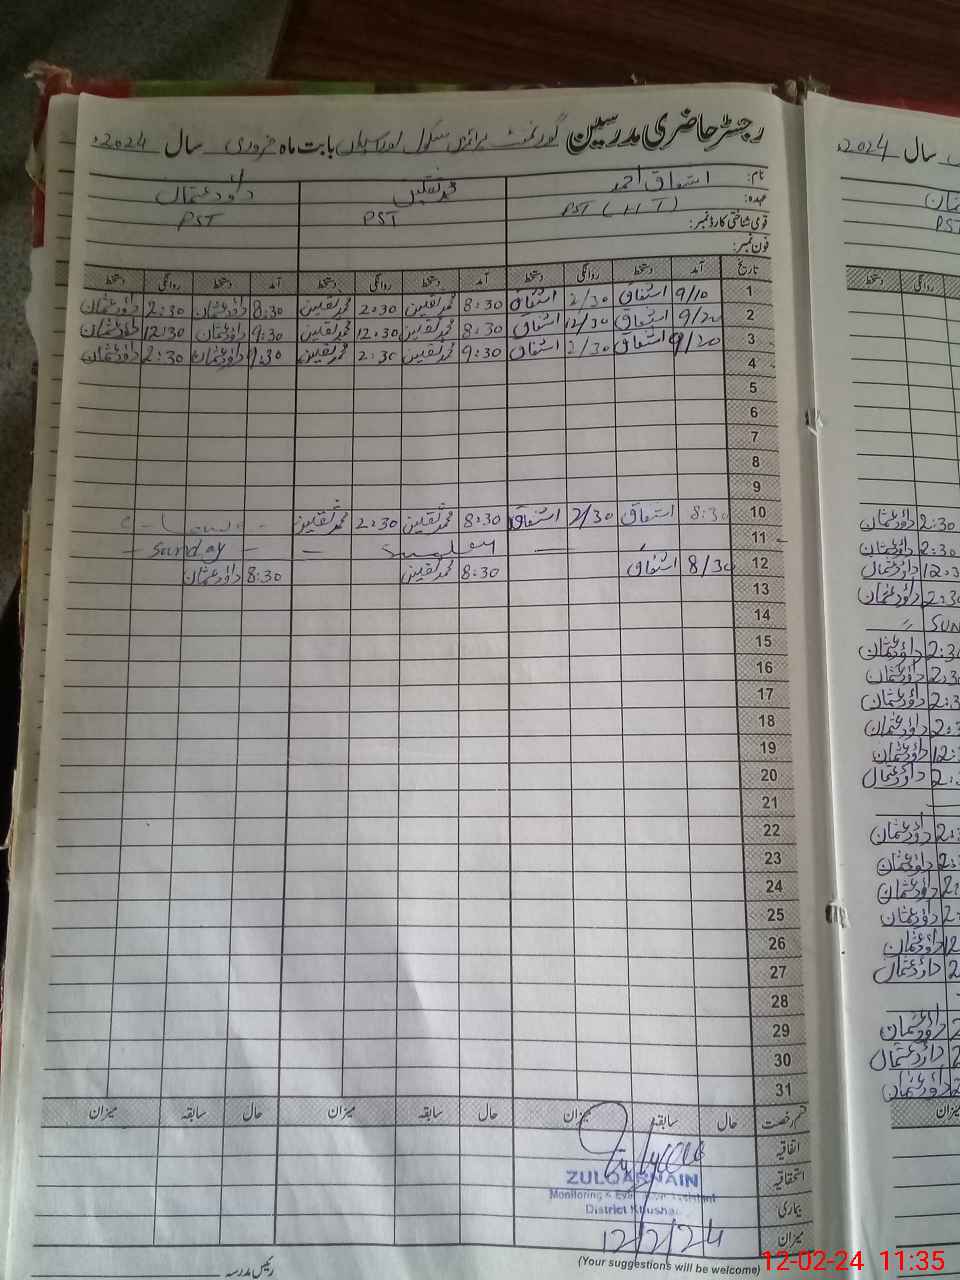 رجسٹر حاضری مدرسین گورنمنٹ پرائمری سکول بابت ماہ فروری سال 2024ء
نام: اشفاق احمد محمد ثقلین داؤد عثمان
عہدہ: PST (HT) PST PST
قومی شناختی کارڈ نمبر:
فون نمبر:
تاریخ آمد دستخط روانگی دستخط آمد دستخط روانگی دستخط آمد دستخط روانگی دستخط
1 9/10 اشفاق 2/30 اشفاق 8:30 محمد ثقلین 2:30 محمد ثقلین 8:30 داؤد عثمان 2:30 داؤد عثمان
2 9/20 اشفاق 12/30 اشفاق 8:30 محمد ثقلین 12:30 محمد ثقلین 9:30 داؤد عثمان 12:30 داؤد عثمان
3 9/20 اشفاق 2/30 اشفاق 9:30 محمد ثقلین 2:30 محمد ثقلین 9:30 داؤد عثمان 2:30 داؤد عثمان
4
5
6
7
8
9
10 8:30 اشفاق 2/30 اشفاق 8:30 محمد ثقلین 2:30 محمد ثقلین
11 — Sunday — — Sunday —
12 8/30 اشفاق 8:30 محمد ثقلین 8:30 داؤد عثمان
13
14
15
16
17
18
19
20
21
22
23
24
25
26
27
28
29
30
31
قسم رخصت حال سابقہ میزان حال سابقہ میزان حال سابقہ میزان
اتفاقیہ
استحقاقیہ
بیماری
میزان
ZULQARNAIN
Monitoring & Evaluation Assistant
District Khushab
12/2/24
رئیس مدرسہ
(Your suggestions will be welcome)
12-02-24 11:35
سال 2024ء
عثمان
PST
دستخط
داؤد عثمان 2:30
داؤد عثمان 2:30
داؤد عثمان 12:3
داؤد عثمان 2:30
SUN
داؤد عثمان 2:30
داؤد عثمان 2:30
داؤد عثمان 2:3
داؤد عثمان 2:3
داؤد عثمان 12:
داؤد عثمان 2:
داؤد عثمان 2:
داؤد عثمان 2:
داؤد عثمان 2:
داؤد عثمان 2:
داؤد عثمان 12
داؤد عثمان 2
داؤد عثمان 2
داؤد عثمان 2
داؤد عثمان 2
میزان